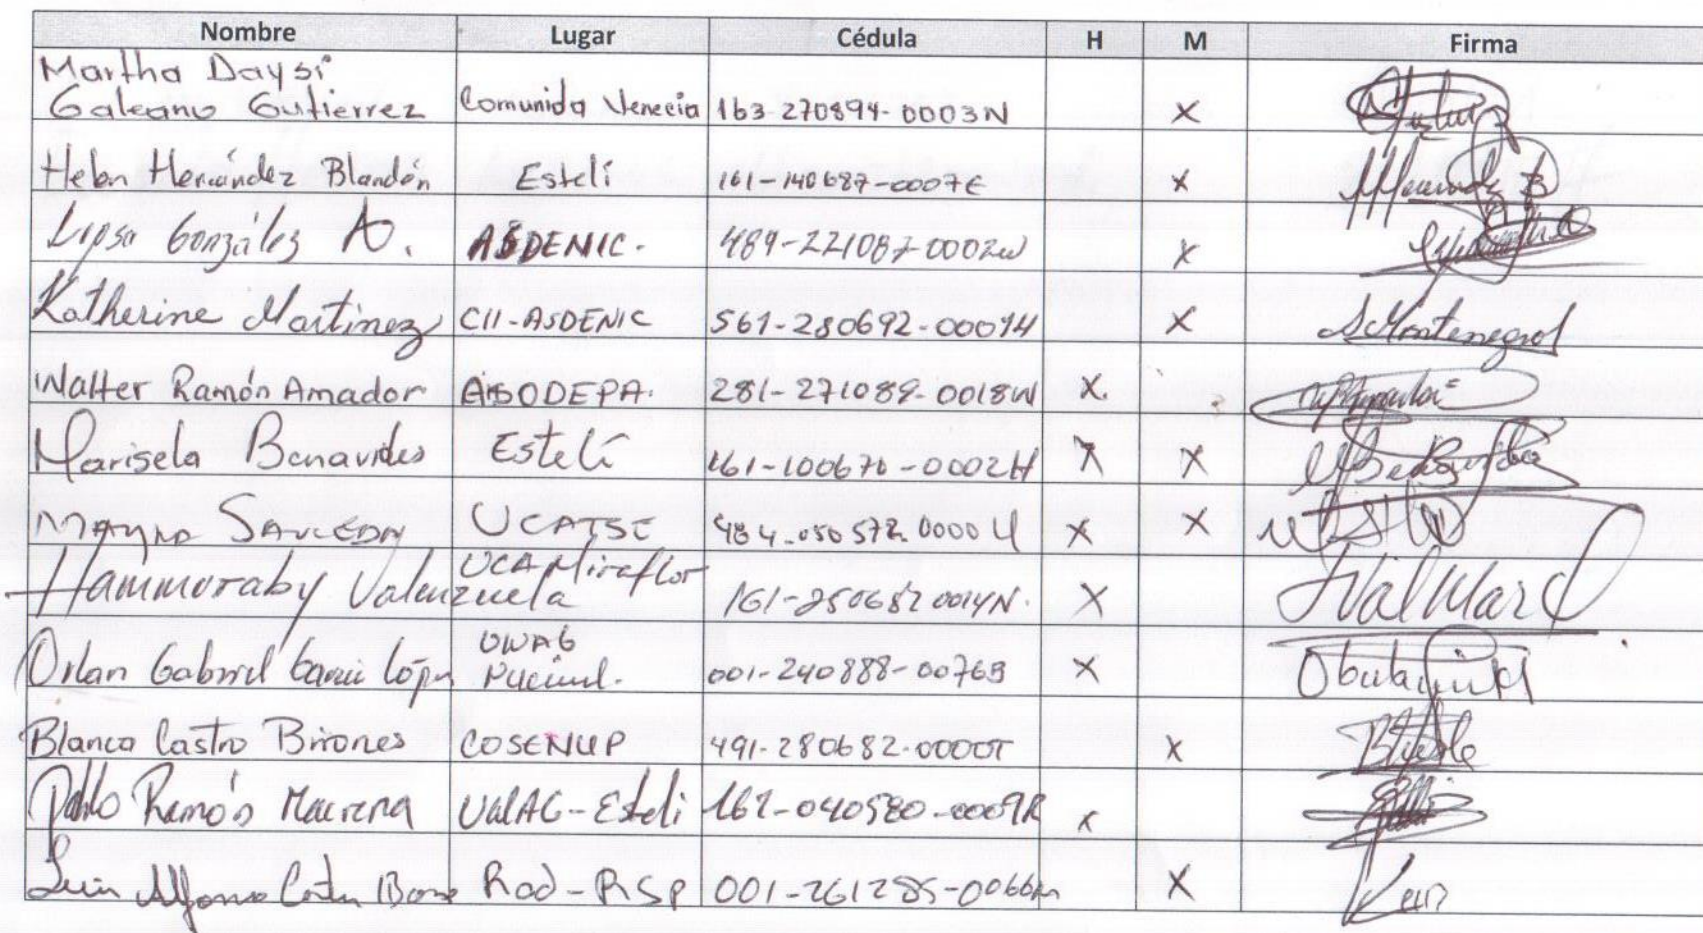 Nombre Lugar Cédula H M Firma
Martha Daysi
Galeano Gutierrez Comunida Venecia 163-270894-0003N X
Helen Hernández Blandón Estelí 161-140687-0007E X
González A. ASDENIC. 489-221087-0002W X
Katherine Martinez CII-ASDENIC 561-280692-0001H X SMontenegro
Walter Ramón Amador ASODEPA. 281-271089-0018W X.
Marisela Benavides Estelí 161-100670-0002H X X
Mayra SAVCEDA UCATSE 484-050572-0000U X X
UCA Miraflor
Hammuraby Valenzuela 161-250682 0014N. X
UNAG
Orlan Gabriel López 001-240888-0076B X
Blanca Castro Briones COSENUP 491-280682-0000T X
Pablo Ramón Mairena UNAG-Estelí 161-040580-0009R X
Alfonso Red-RSP 001-261285-0066 X